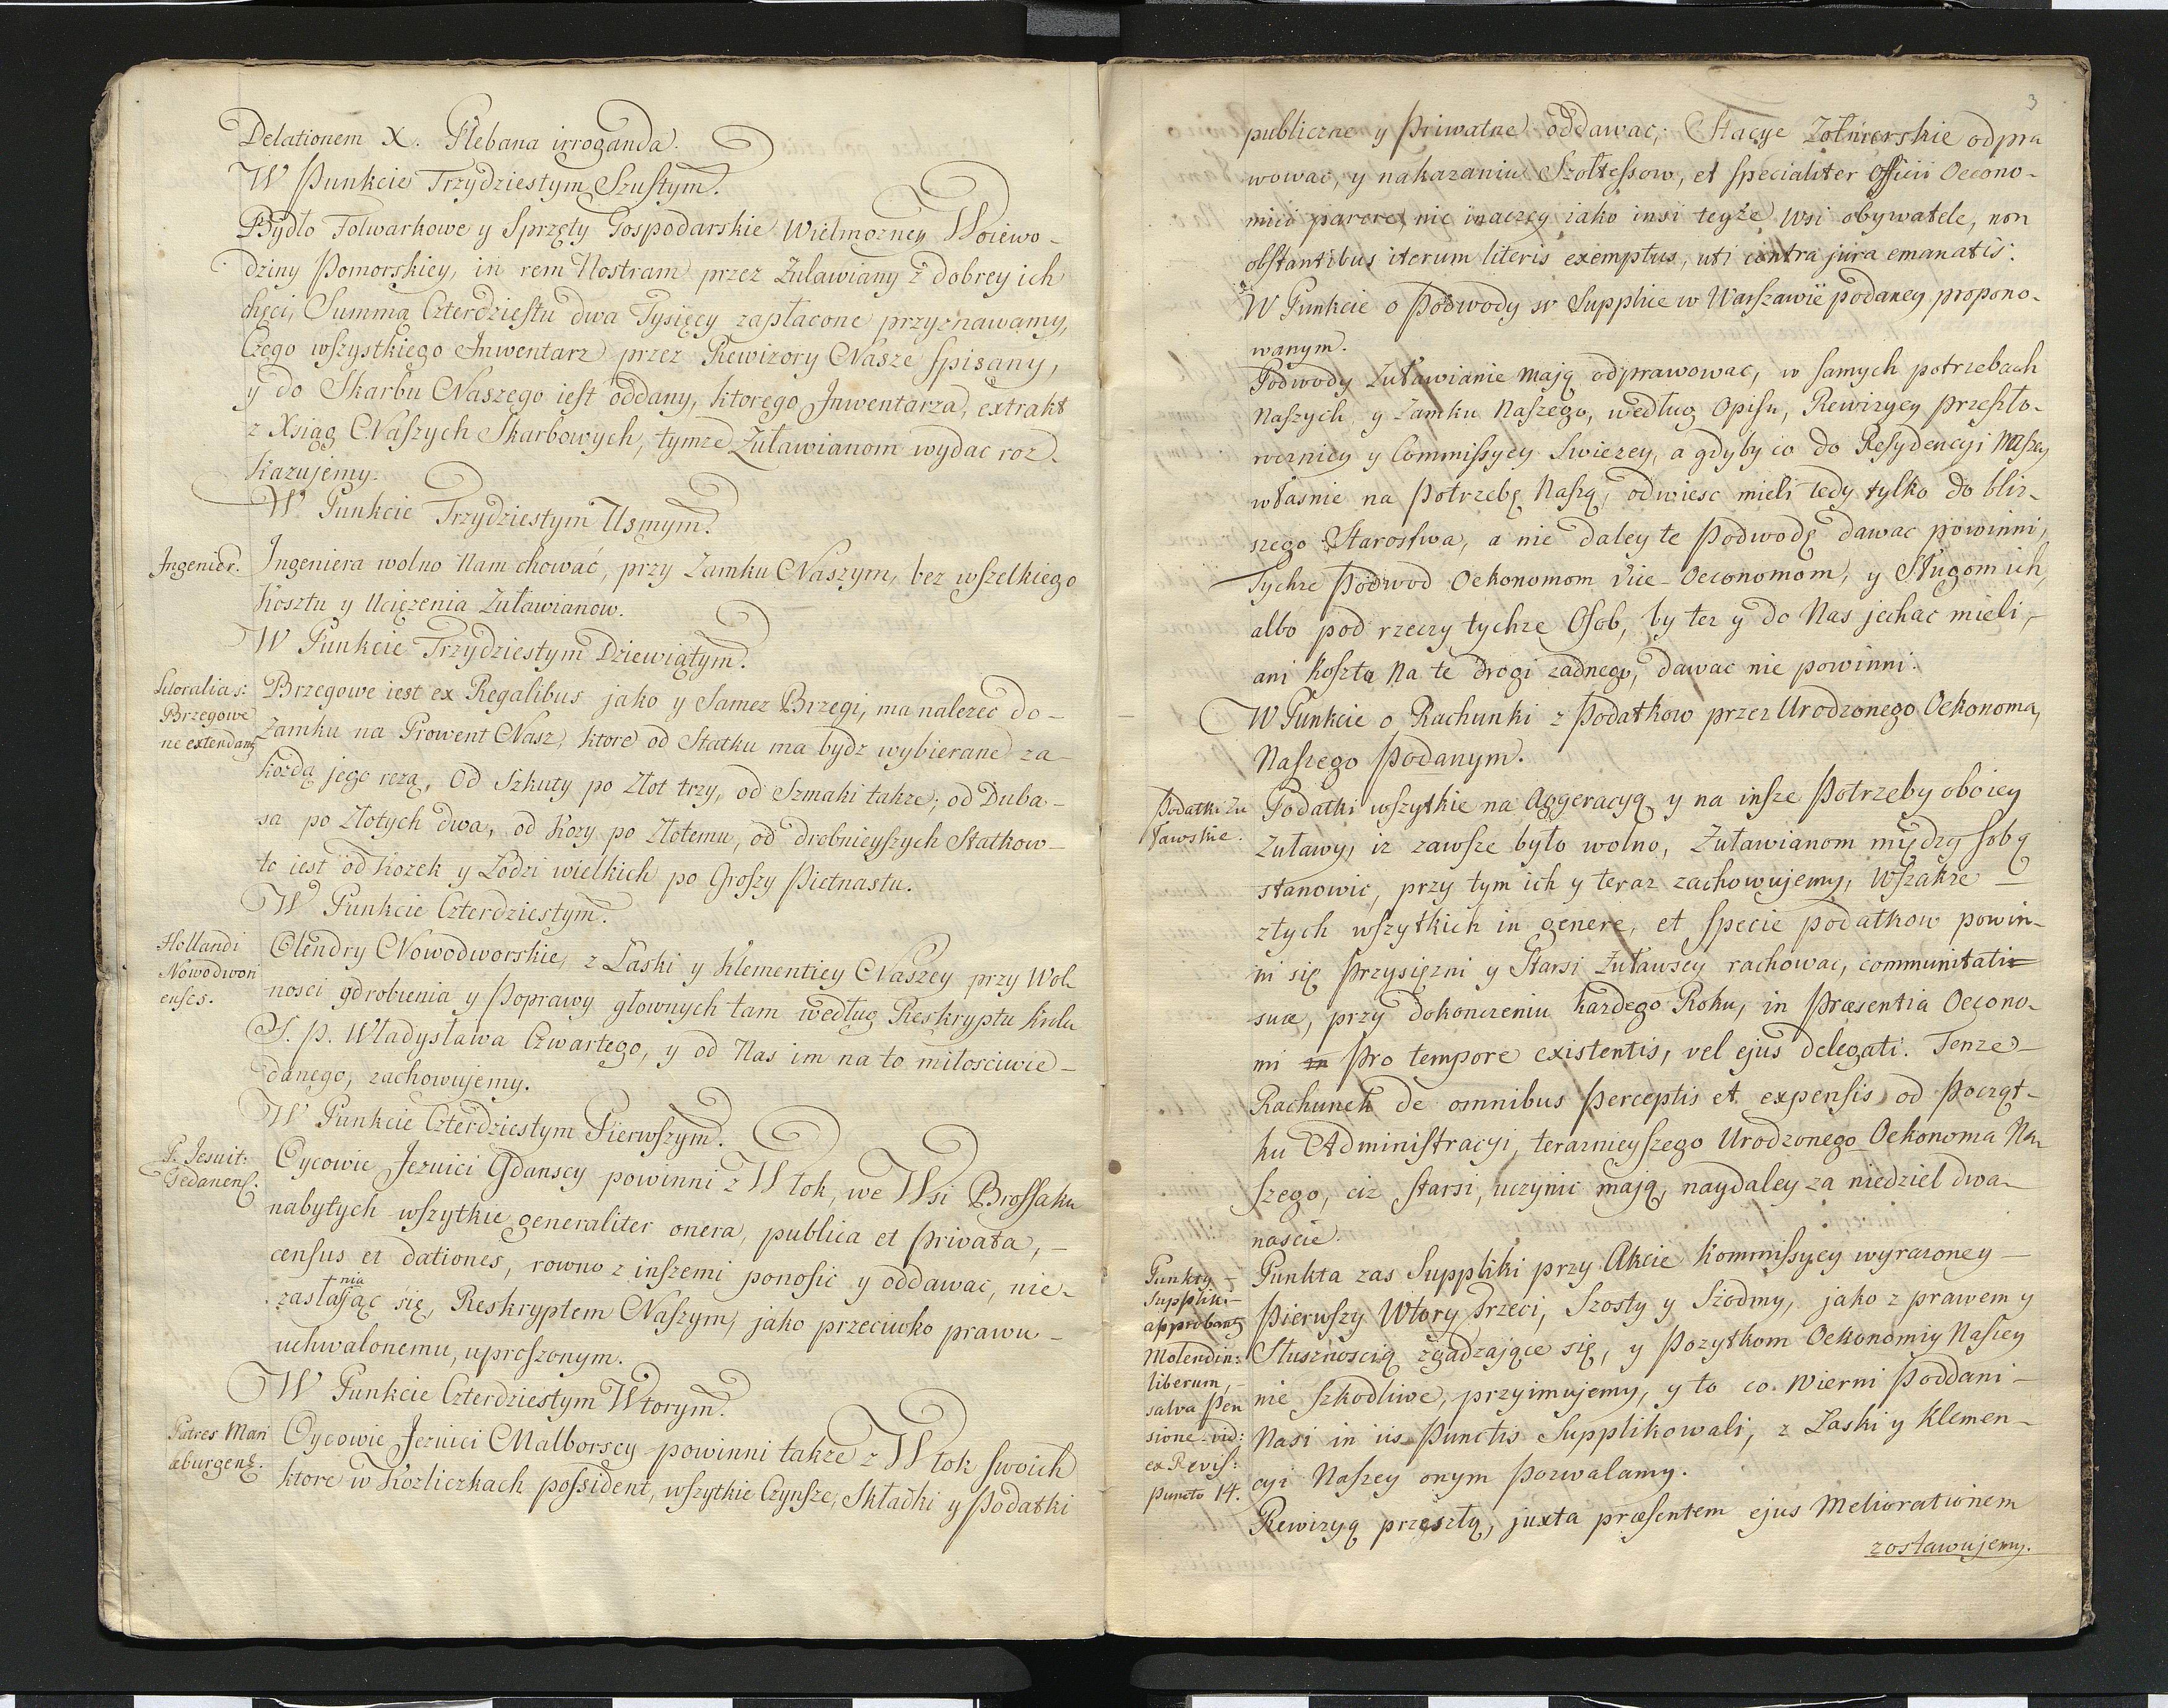 Delationem X. Plebana irroganda.
W Punkcie Trzydziestym Szustym.
Bydło Folwarkowe y Sprzęty Gospodarskie Wielmozney Woiewo-
dziny Pomorskiey, in rem Nostram przez Zulawiany z dobrey ich
chęci, Summą Czterdziestu dwa Tysięcy zapłacone przyznawamy,
Czego wszystkiego Inwentarz przez Rewizory Nasze spisany,
y do Skarbu Naszego iest oddany, ktorego Inwentarza, extrakt
z Xsiąg Naszych Skarbowych, tymze Zuławianom wydac roz-
kazujemy.
W Punkcie Trzydziestym Usmym.
Ingenier.
Ingeniera wolno Nam chować, przy Zamku Naszym, bez wszelkiego
Kosztu y Uciązenia Zuławianow.
W Punkcie Trzydziestym Dziewiątym.
Litoralia s:
Brzegowe
ne extendant
Brzegowe iest ex Regalibus jako y Samez Brzegi, ma nalezec do-
Zamku na Prowent Nasz, ktore od Statku ma bydz wybierane za-
kozdą jego rezą, Od Szkuty po Złot trzy, od Szmaki takze; od Duba-
sa po Złotych dwa, od Kozy po Złotemu, od drobnieyszych Statkow-
to iest od Kozek y Lodzi wielkich po Groszy Pietnastu.
W Punkcie Czterdziestym.
Hollandi
Nowodwori
enses.
Olendry Nowodworskie, z Łaski y Klementiey Naszey przy Wol-
nosci gdrobienia y Poprawy głownych tam według Reskryptu Krola
S. p. Władysława Czwartego, y od Nas im na to miłosciwie-
danego, zachowujemy.
W Punkcie Czterdziestym Pierwszym.
P. Jesuit:
Gedanens.
Oycowie Jezuici Gdanscy powinni z Włok, we Wsi Brossaku
nabytych wszytkie generaliter onera, publica et privata,-
census et dationes, rowno z inszemi ponosic y oddawac, nie-
zasłaniając się, Reskryptem Naszym, jako przeciwko prawu-
uchwalonemu, uproszonym.
W Punkcie Czterdziestym Wtorym.
Patres Mari
aeburgens.
Oycowie Jezuici Malborscy powinni takze z Włok swoich
ktore w Kozliczkach possident, wszytkie Czynsze, Składki y Podatki
3
publiczne y Priwatne oddawac; Stacye Zołnierskie odpra
wowac, y nakazaniu Szołtessow, et specialiter Officii Oecono-
mici parere, nie inaczey iako insi teyże wsi obywatele, non
obstantibus iterum literis exemptus, uti contra jura emanatis.
W Punkcie o Podwody w Supplice w Warszawie podaney propono-
wanym.
Podwody Zuławianie mają odprawowac, w samych potrzebach
Naszych, y Zamku Naszego, według Opisu, Rewizyey przeszło-
roczniey y Commissyey Swiezey, a gdyby co do Resydencyi Naszey
własnie na Potrzebę Naszą, odwiesc mieli tedy tylko do bliz-
szego Starostwa, a nie daley te Podwodę dawac powinni,
Tychze Podwod Oekonomom Vice-Oeconomom, y Sługom ich,
albo pod rzeczy tychze Osob, by tez y do Nas jechac mieli,-
ani kosztu Na te drogi zadnego, dawac nie powinni.
W Punkcie o Rachunki z Podatkow przez Urodzonego Oekonoma,
Naszego Podanym.
Podatki Zu
ławskie.
Podatki wszytkie na Aggeracyą y na insze Potrzeby oboiey
Zuławy, iz zawsze było wolno, Zuławianom między sobą
stanowic, przy tym ich y teraz zachowujemy, Wszakze-
ztych wszytkich in genere, et specie podatkow powin-
ni się Przysięzni y Starsi Zuławscy rachowac, communitatis
suae, przy dokonczeniu kazdego Roku, in Praesentia Oecono-
mi in pro tempore existentis, vel ejus delegati. Tenze-
Rachunek de omnibus Perceptis et expensis od Począt-
ku Administracyi, teraznieyszego Urodzonego Oekonoma Na-
szego, ciz starsi, uczynic mają, naydaley za niedziel dwa-
nascie.
Punkty-
Suppliki-
approbant
Molendin:
liberum,-
salva Pen
sione. vid:
ex Revis:
puncto 14.
Punkta zas Suppliki przy Akcie Kommissyey wyrazoney-
Pierwszy Wtory Trzeci, Szosty y Siodmy, jako z prawem y
Słusznoscią zgadzające się, y Pozytkom Oekonomiy Naszey
nie szkodliwe, przyimujemy, y to co Wierni Poddani-
Nasi in iis Punctis Supplikowali, z Łaski y Klemen-
cyi Naszey onym Pozwalamy.
Rewizyą przeszłą, juxta praesentem ejus Meliorationem
zostawujemy.